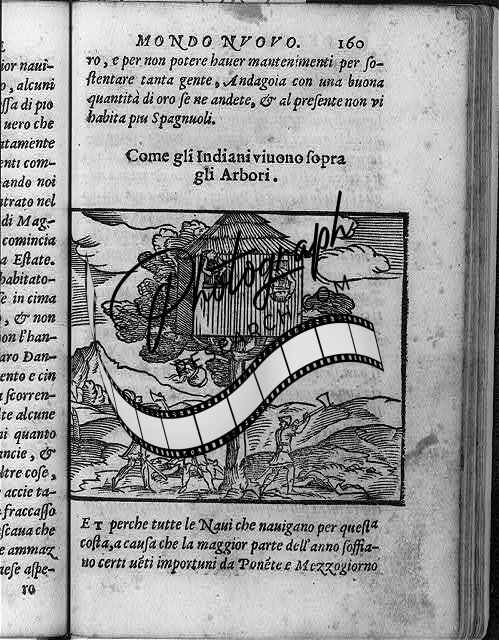 ior naui-
o, alcuni
ſſa di pio
uero che
ntamente
enti com-
ando noi
ntrato nel
di Mag-
comincia
a Eſtate.
habitato-
ſe in cima
o, & non
on l'han-
aro Dan-
ento e cin
a ſcorren-
lte alcune
ni quanto
ancie, &
ltre coſe,
accie ta-
fraccaſſo
ſcaua che
e ammaz
aeſe aſpe-
ro
MONDO NVOVO. 160
ro, e per non potere hauer mantenimenti per ſo-
ſtentare tanta gente, Andagoia con una buona
quantità di oro ſe ne andete, & al preſente non vi
habita piu Spagnuoli.
Come gli Indiani viuono ſopra
gli Arbori.
Photograph
ET perche tutte le Naui che nauigano per queſta
coſta, a cauſa che la maggior parte dell'anno ſoffia-
no certi uẽti importuni da Ponẽte e Mezzogiorno